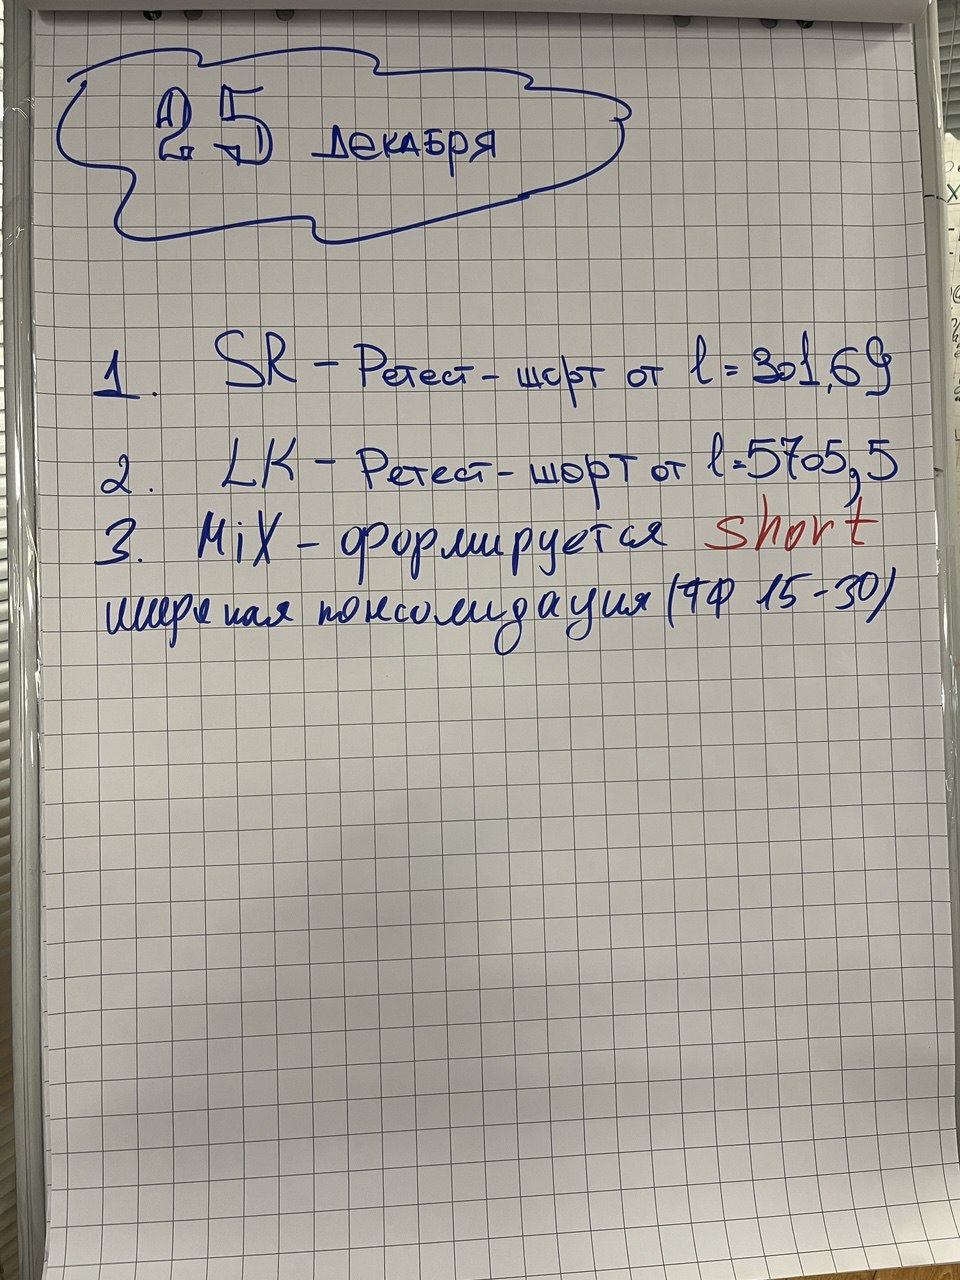 25 декабря
1. SR - Ретест - шорт от l = 301,69
2. LK - Ретест - шорт от l = 5705,5
3. MiX - формируется short
широкая консолидация (ТФ 15-30)